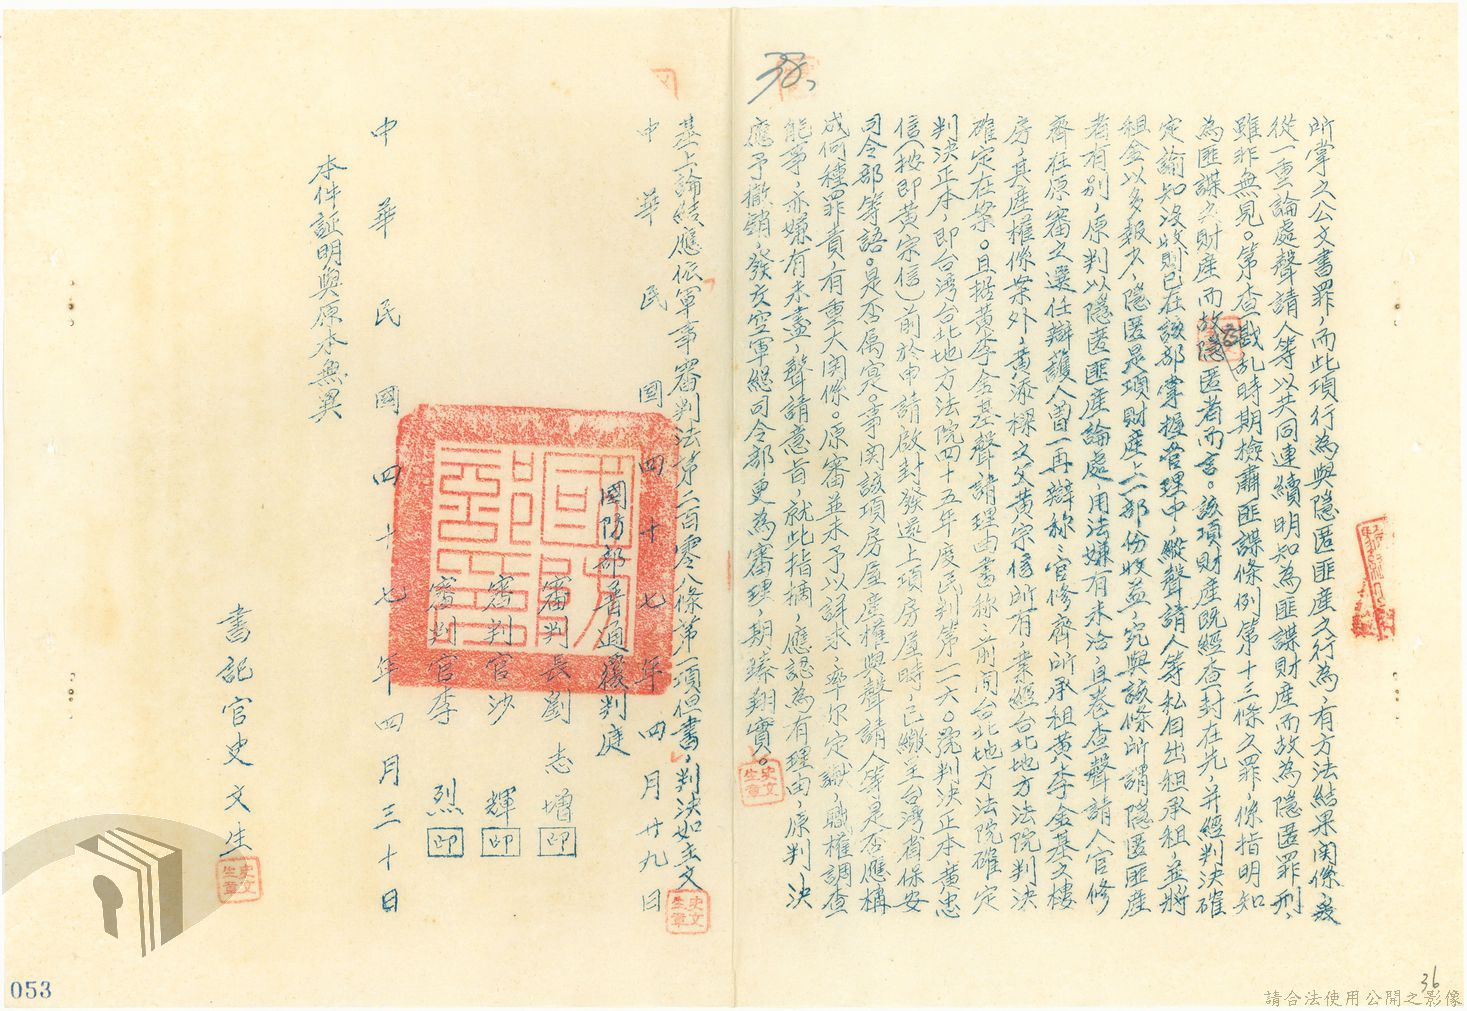 所掌之公文書罪，而此項行為與隱匿匪產之行為，有方法結果関係，爰
從一重論處聲請人等以共同連續明知為匪諜財產而故為隱匿罪刑，
雖非無見。第查戡乱時期檢肅匪諜條例第十三條之罪，係指明知
為匪諜之財產而故隱匿者而言。該項財產既經查封在先，并經判決確
定諭知沒收，則已在該部掌握管理中，縱聲請人等私自出租承租，並將
租金以多報少，隱匿是項財產上一部份收益，究與該條所謂隱匿匪產
者有別，原判以隱匿匪產論處，用法嫌有未洽，且卷查聲請人官修
齊在原審之選任辯護人曾一再辯称：官修齊所承租黃李金基之樓
房，其產權係案外黃添樑之父黃宗信所有，業經台北地方法院判決
確定在案。且据黃李金基聲請理由書称：前開台北地方法院確定
判決正本，即台灣台北地方法院四十五年度民判第一一六〇號判決正本黃忠
信（按即黃宗信）前於申請啟封發還上項房屋時已繳呈台灣省保安
司令部等語。是否属实。事関該項房屋產權與聲請人等是否應構
成何種罪責，有重大関係。原審並未予以詳求，率尔定讞，職權調查
能事，亦嫌有未盡，聲請意旨，就此指摘，應認為有理由，原判決
應予撤銷，發交空軍總司令部，更為審理，期臻翔實。
基上論結應依軍事審判法第二百零八條第一項但書，判決如主文
中華民国四十七年四月廿九日
國防部普通覆判庭
審判長劉志增 印
審判官沙輝 印
審判官李烈 印
中華民國四十七年四月三十日
本件証明與原本無異
書記官史文生
史文生章
史文生章
史文生章
38
36
053
請合法使用公開之影像